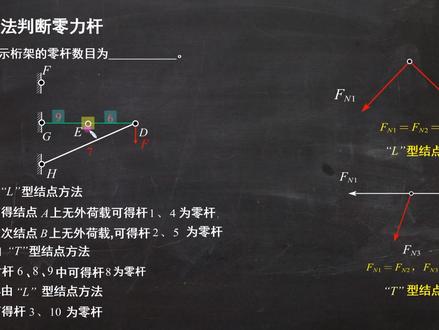 法判断零力杆
示桁架的零杆数目为__________。
F
9
6
G
E
D
F
7
H
“L”型结点方法
得结点 A上无外荷载可得杆1、4为零杆
次结点 B上无外荷载,可得杆2、5 为零杆
“T”型结点方法
杆 6、8、9 中可得杆8为零杆
由“L” 型结点方法
得杆 3、10 为零杆
F_N1
F_N1 = F_N2 =
“L”型结点
F_N1
F_N3
F_N1 = F_N2， F_N
“T”型结点